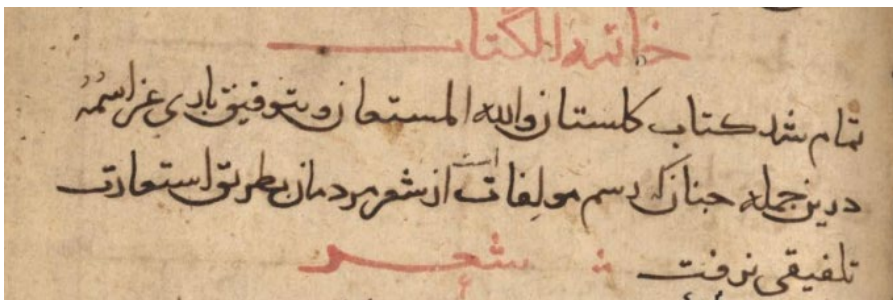 خاتمة الكتاب
تمام شد كتاب كلستان والله المستعان وبتوفيق باري عز اسمه
درين جمله جنانك رسم مولفات است از شعر مردمان بطريق استعارت
تلفيقى نرفت شعر